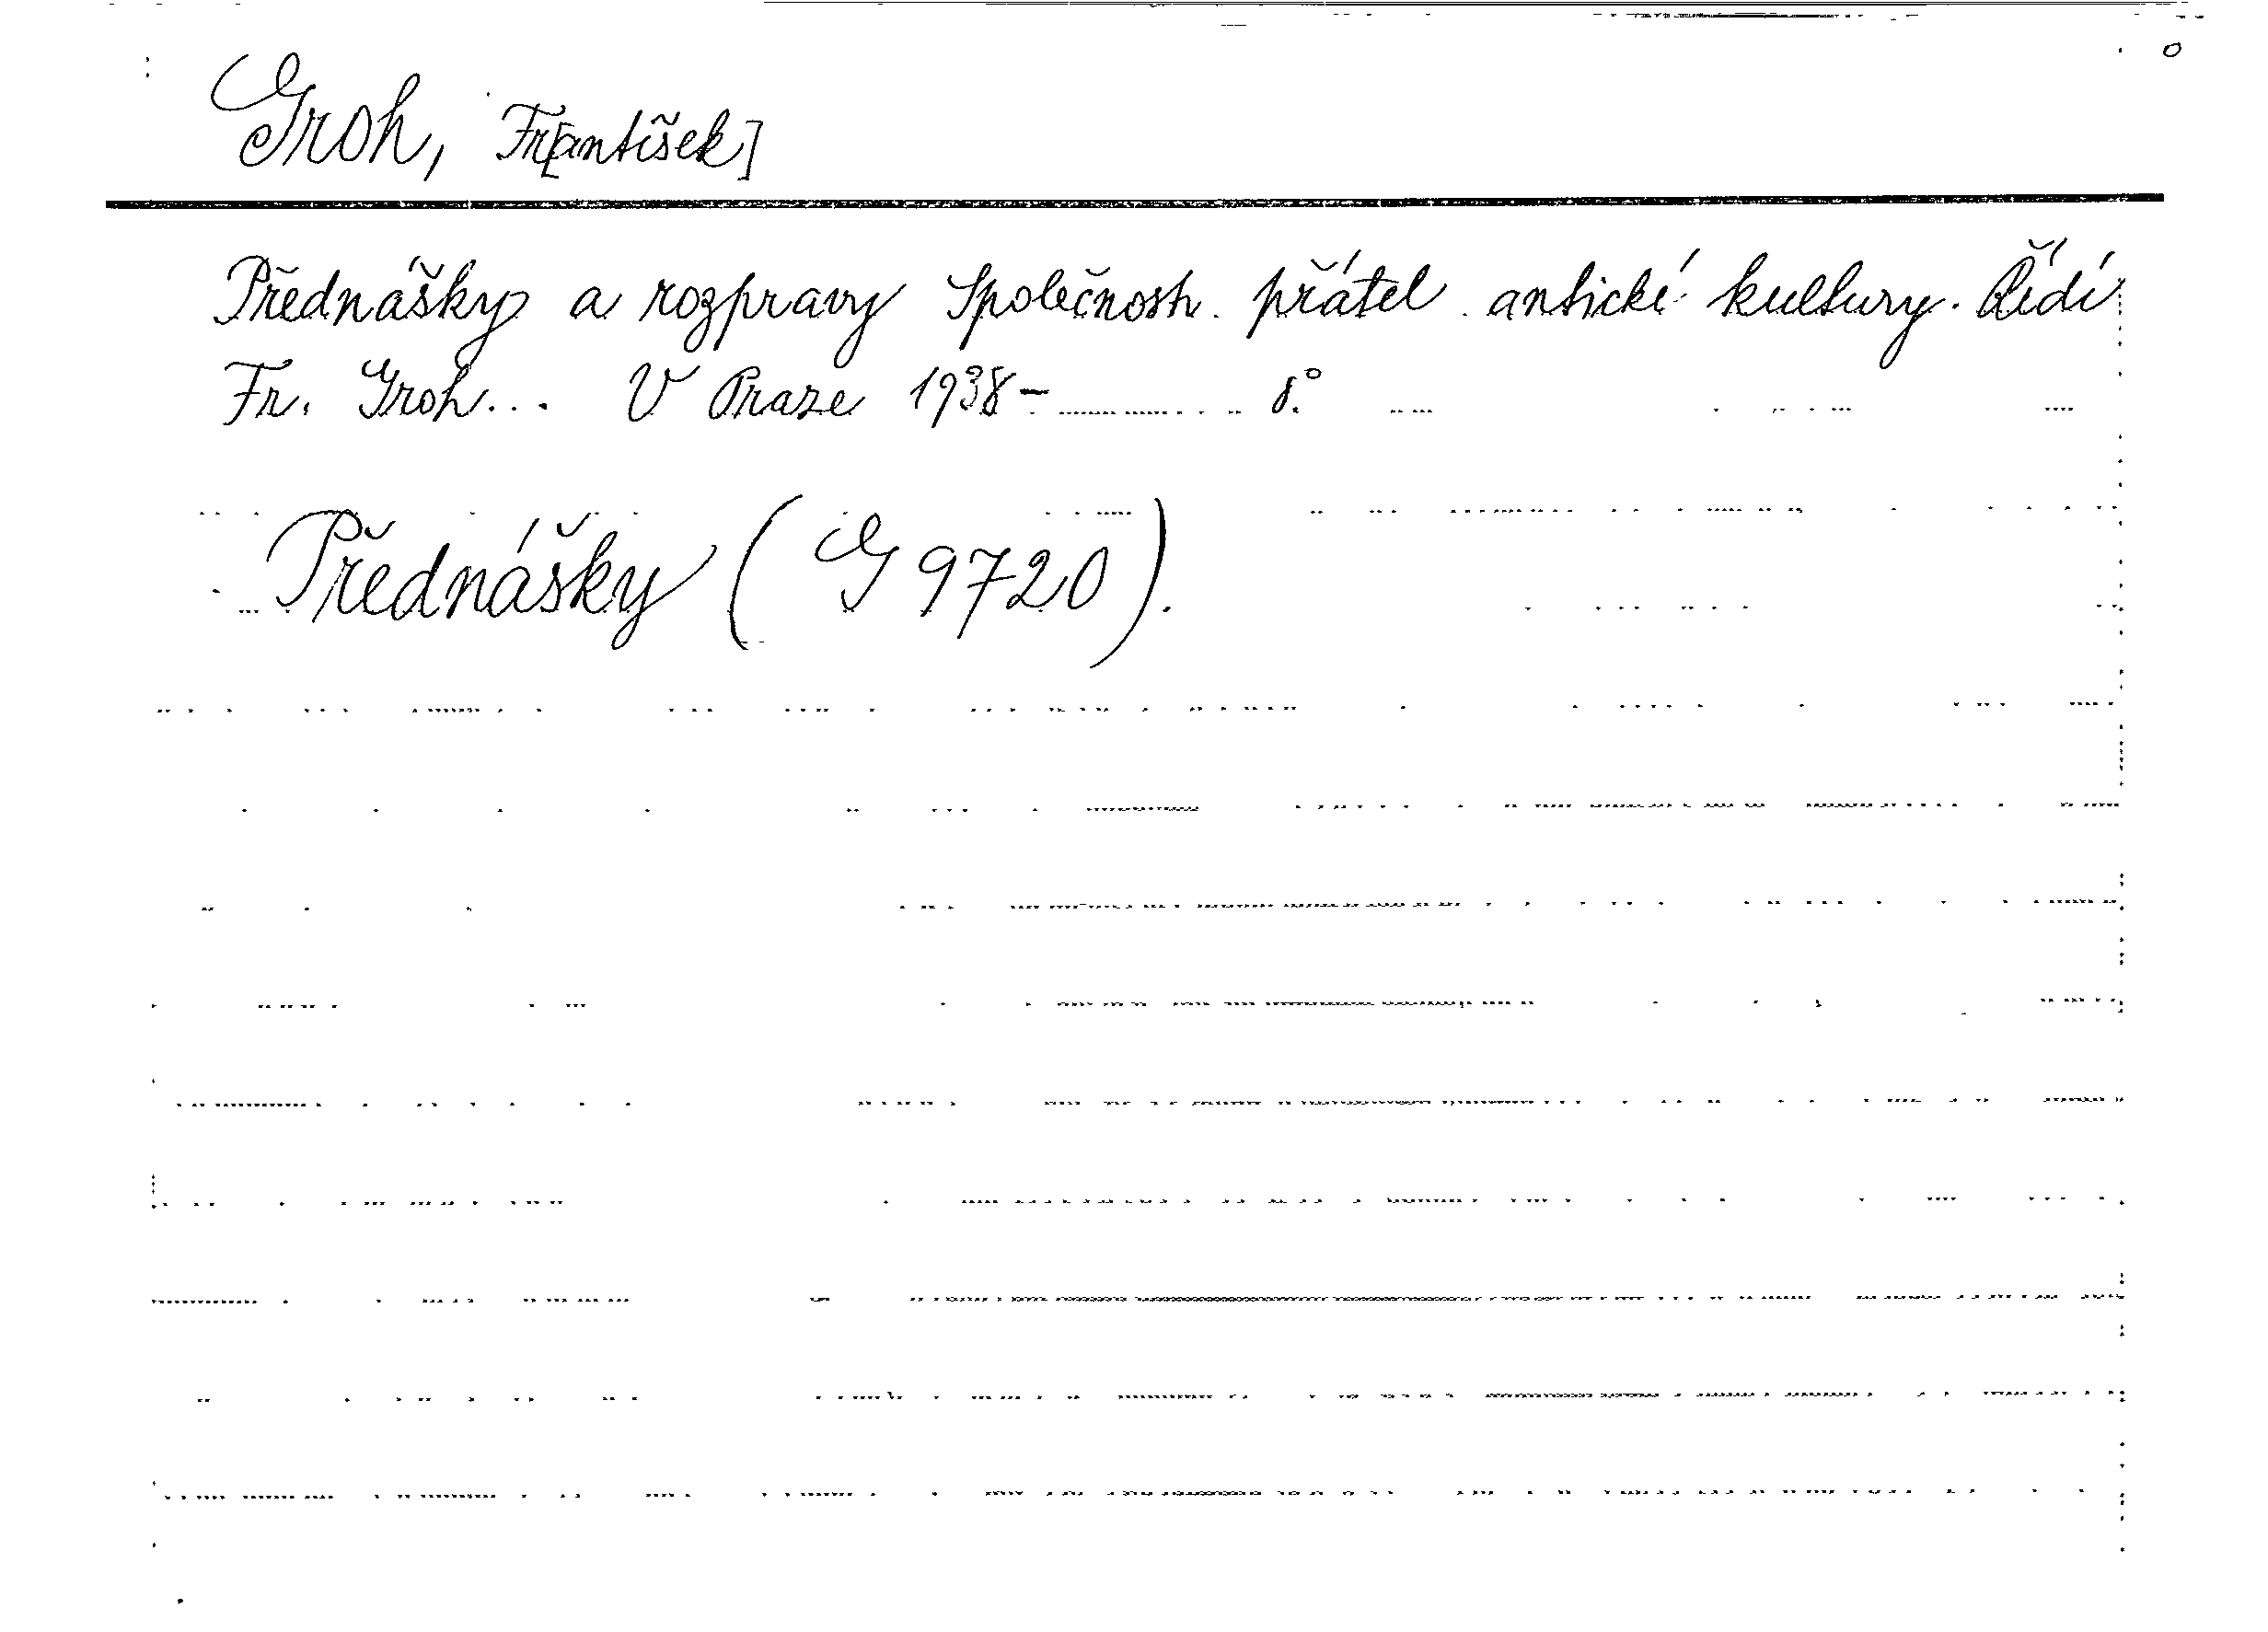 Groh, Fr[antišek]
Přednášky a rozpravy Společnosti přátel antické kultury. Řídí
Fr. Groh... V Praze 1938- 8.°
Přednášky (G 9720).